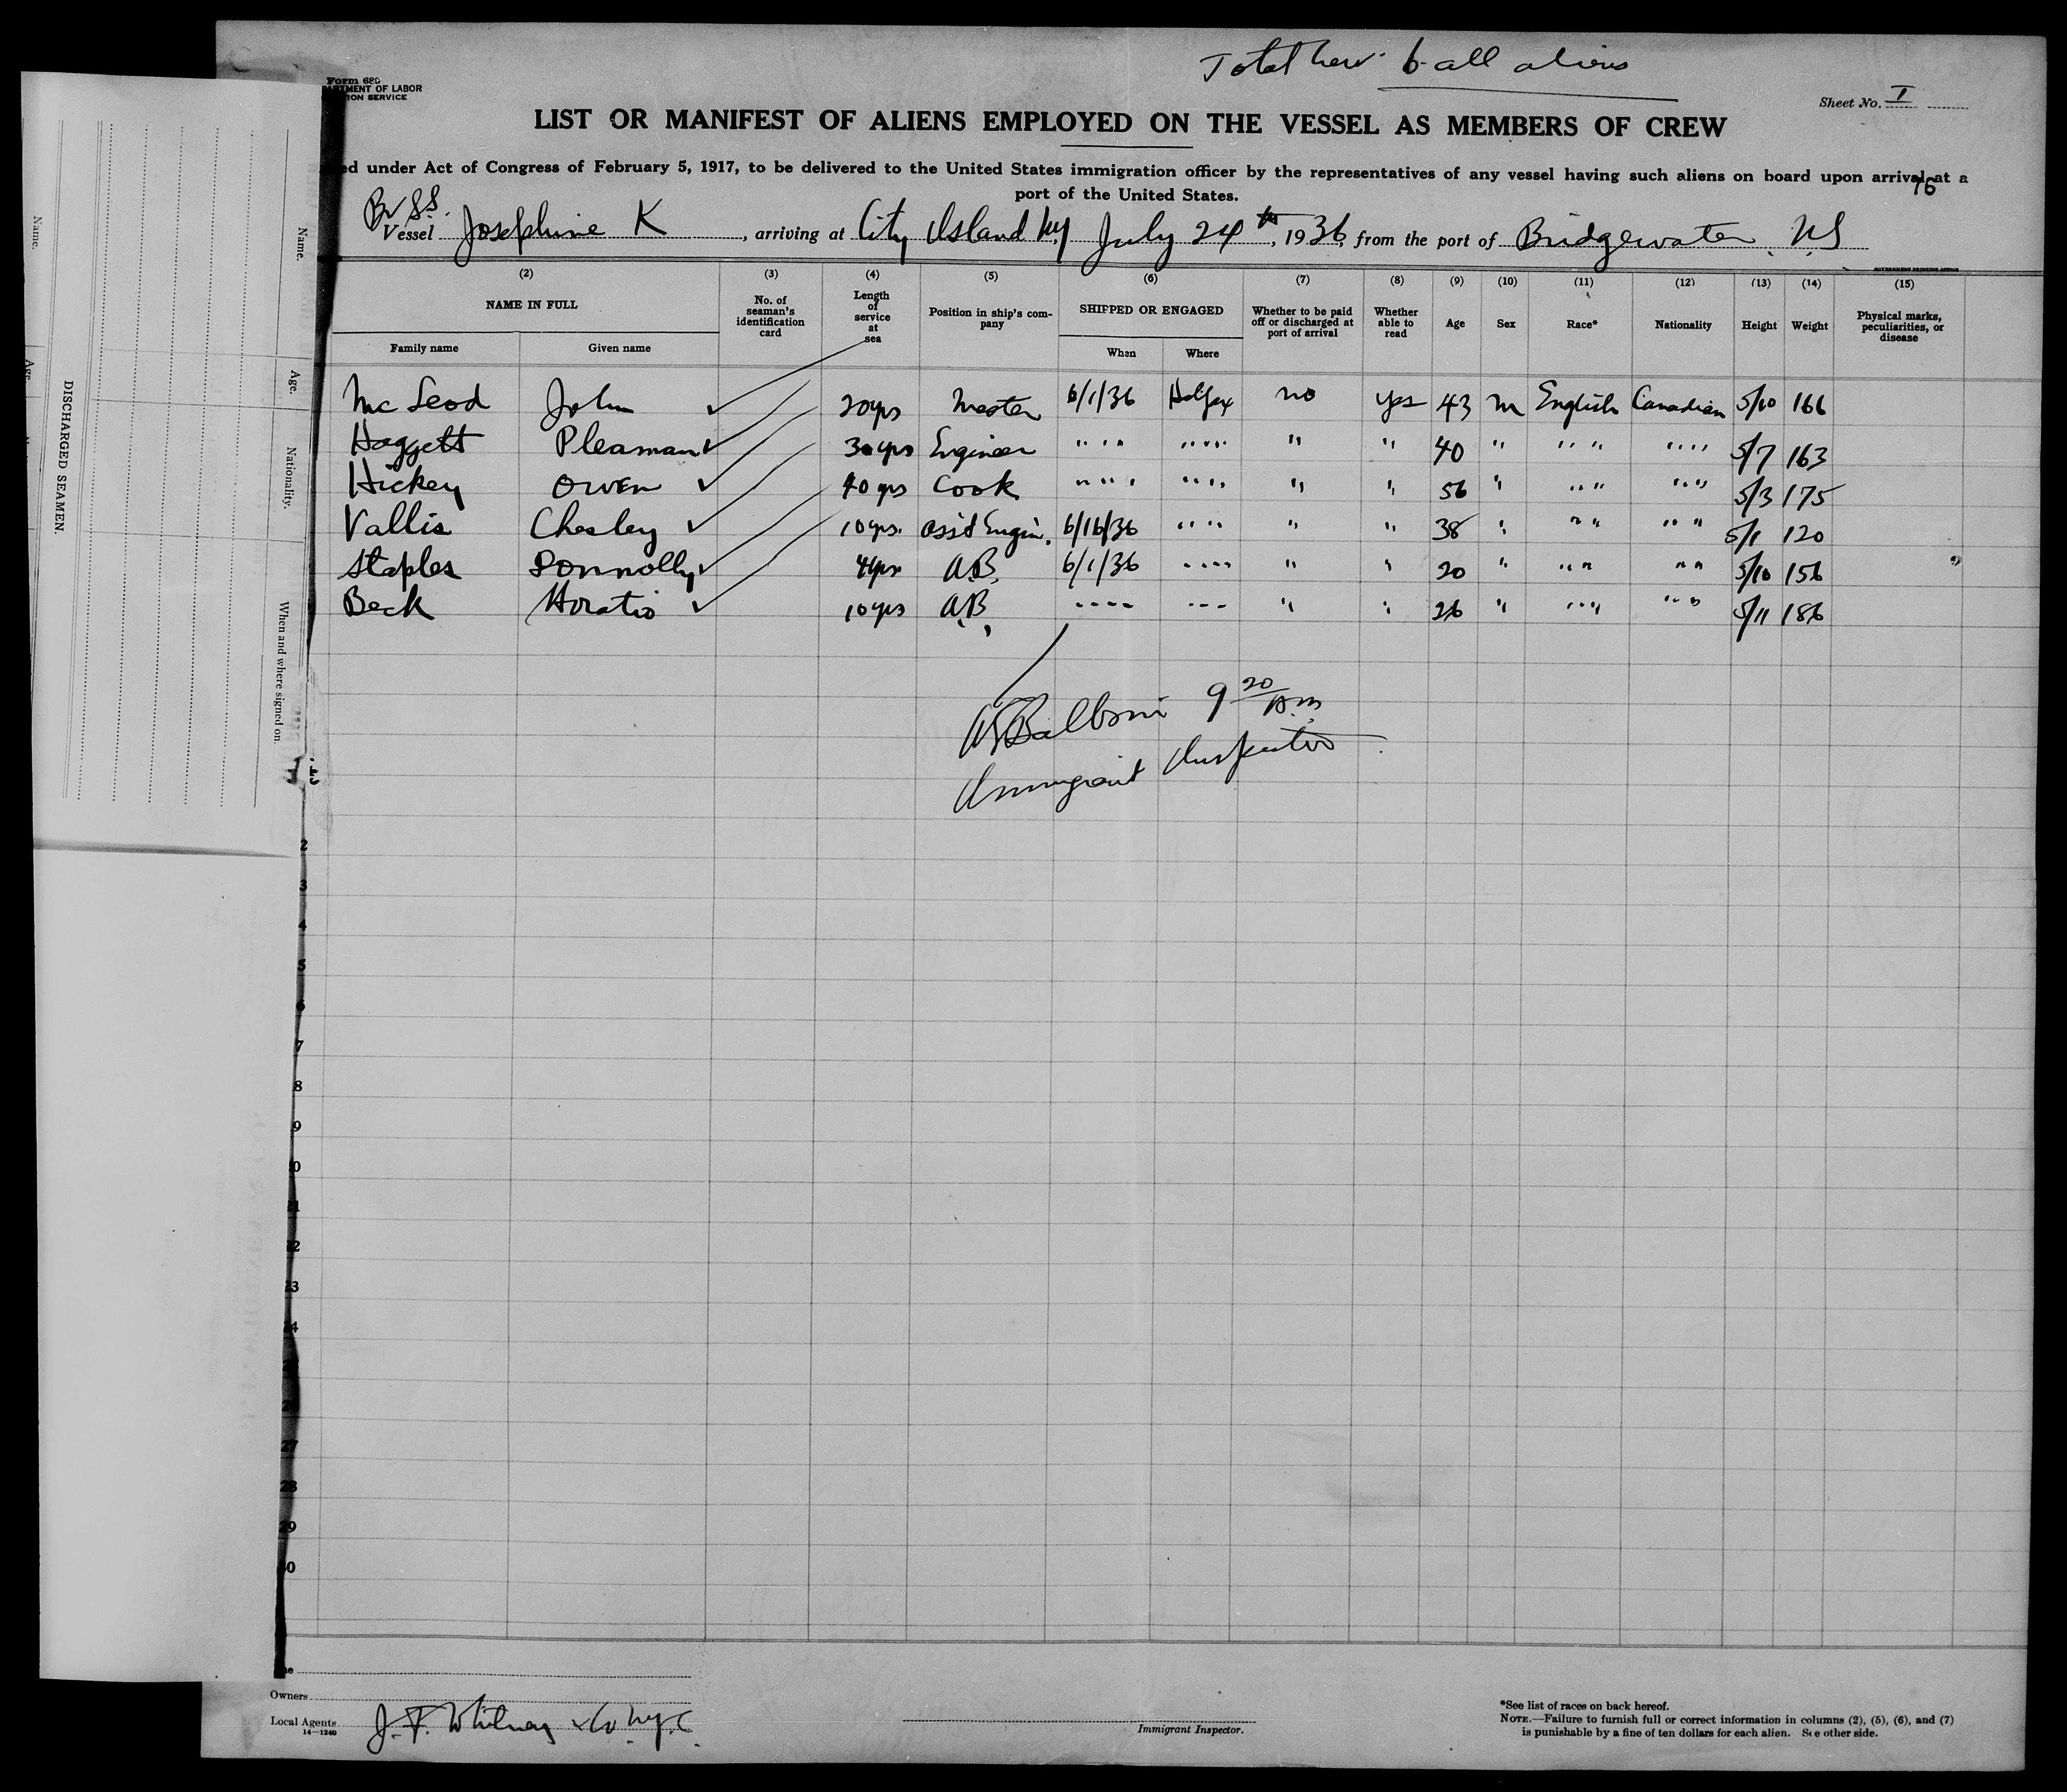 Total crew 6 all aliens
Form 680
TMENT OF LABOR
TION SERVICE
Sheet No. I
LIST OR MANIFEST OF ALIENS EMPLOYED ON THE VESSEL AS MEMBERS OF CREW
ed under Act of Congress of February 5, 1917, to be delivered to the United States immigration officer by the representatives of any vessel having such aliens on board upon arrival at a
port of the United States.
76
Br SS.
Vessel Josephine K, arriving at City Island NY July 24th, 1936, from the port of Bridgewater N.S
GOVERNMENT PRINTING OFFICE
(2) (3) (4) (5) (6) (7) (8) (9) (10) (11) (12) (13) (14) (15)
NAME IN FULL No. of seaman's identification card Length of service at sea Position in ship's company SHIPPED OR ENGAGED Whether to be paid off or discharged at port of arrival Whether able to read Age Sex Race* Nationality Height Weight Physical marks, peculiarities, or disease
Family name Given name When Where
McLeod John ✓ 20yrs Master 6/1/36 Halfax no yes 43 m English Canadian 5/10 166
Haggett Pleaman ✓ 30yrs Engineer " " " " " " 40 " " " " " 5/7 163
Hickey Owen ✓ 40 yrs Cook " " " " " " 56 " " " " " 5/3 175
Vallis Chesley ✓ 10yrs. Ass't Engin. 6/16/36 " " " " 38 " " " " " 5/1 120
Staples Donnolly ✓ 4yrs A.B. 6/1/36 " " " " 20 " " " " " 5/10 156
Beck Horatio ✓ 10yrs A.B. " " " " " " 26 " " " " " 5/11 186
Balboni 9 20/ A.m
Immigrant Inspector
2
3
4
5
6
7
8
9
0
1
2
3
4
27
28
29
0
Owners
Local Agents J. F. Whitney & Co N.Y.C.
14—1240
Immigrant Inspector.
*See list of races on back hereof.
NOTE.—Failure to furnish full or correct information in columns (2), (5), (6), and (7)
is punishable by a fine of ten dollars for each alien. See other side.
DISCHARGED SEAMEN.
Name.
Age.
Name.
Age.
Nationality.
When and where signed on.